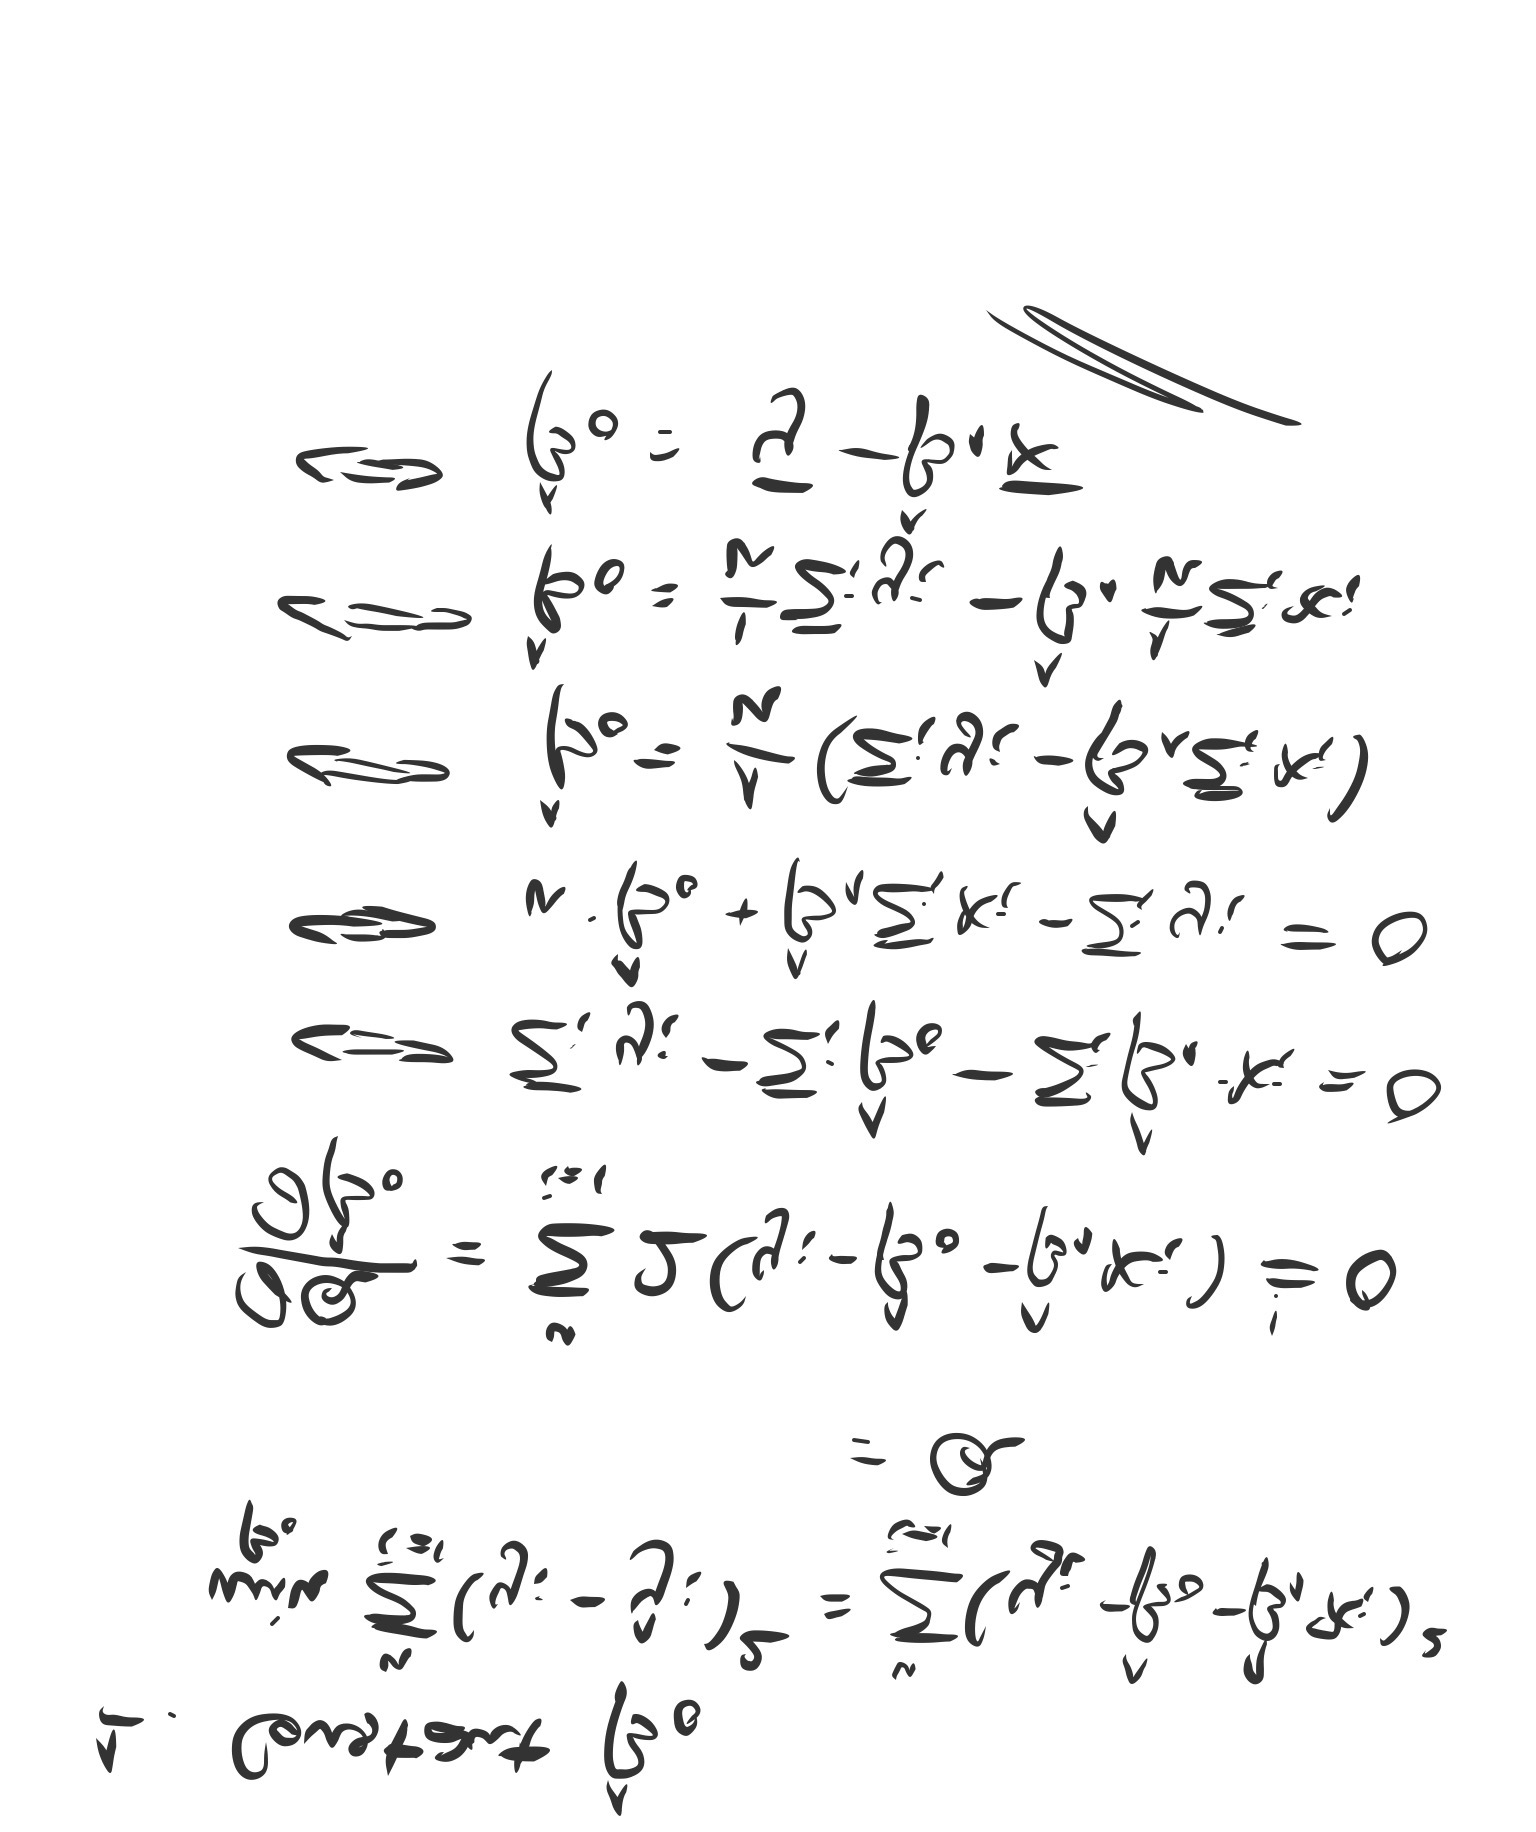 1. Constant β̂₀
min_β₀ Σᵢ₌₁ⁿ (yᵢ - ŷᵢ)² = Σᵢ₌₁ⁿ (yᵢ - β̂₀ - β̂₁xᵢ)²
= Q
∂Q/∂β̂₀ = Σᵢ₌₁ⁿ 2(yᵢ - β̂₀ - β̂₁xᵢ) =! 0
⇔ Σᵢ yᵢ - Σᵢ β̂₀ - Σᵢ β̂₁ · xᵢ = 0
⇔ n · β̂₀ + β̂₁ Σᵢ xᵢ - Σᵢ yᵢ = 0
⇔ β̂₀ = 1/n (Σᵢ yᵢ - β̂₁ Σᵢ xᵢ)
⇔ β̂₀ = 1/n Σᵢ yᵢ - β̂₁ 1/n Σᵢ xᵢ
⇔ β̂₀ = ȳ - β̂₁ x̄